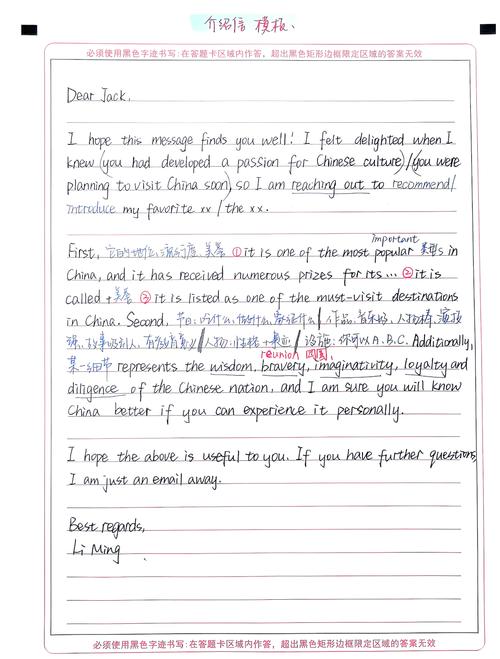 介绍信 模板、
必须使用黑色字迹书写:在答题卡区域内作答，超出黑色矩形边框限定区域的答案无效
Dear Jack,
I hope this message finds you well! I felt delighted when I
knew (you had developed a passion for Chinese culture)/(you were
planning to visit China soon), so I am reaching out to recommend/
introduce my favorite xx / the xx.
important
First, 它的地位、流行度、美誉 ① it is one of the most popular 类型s in
China, and it has received numerous prizes for its... ② it is
called + 美誉 ③ it is listed as one of the must-visit destinations
in China. Second, 节日:吃什么、做什么、 / 作品:音乐好、人物棒、
故事吸引人、有教育意义 // 人物:性格 + / 设施:你可以A.B.C. Additionally,
reunion 团圆
某一细节 represents the wisdom, bravery, imaginativity, loyalty and
diligence of the Chinese nation, and I am sure you will know
China better if you can experience it personally.
I hope the above is useful to you. If you have further questions,
I am just an email away.
Best regards,
Li Ming
必须使用黑色字迹书写:在答题卡区域内作答，超出黑色矩形边框限定区域的答案无效